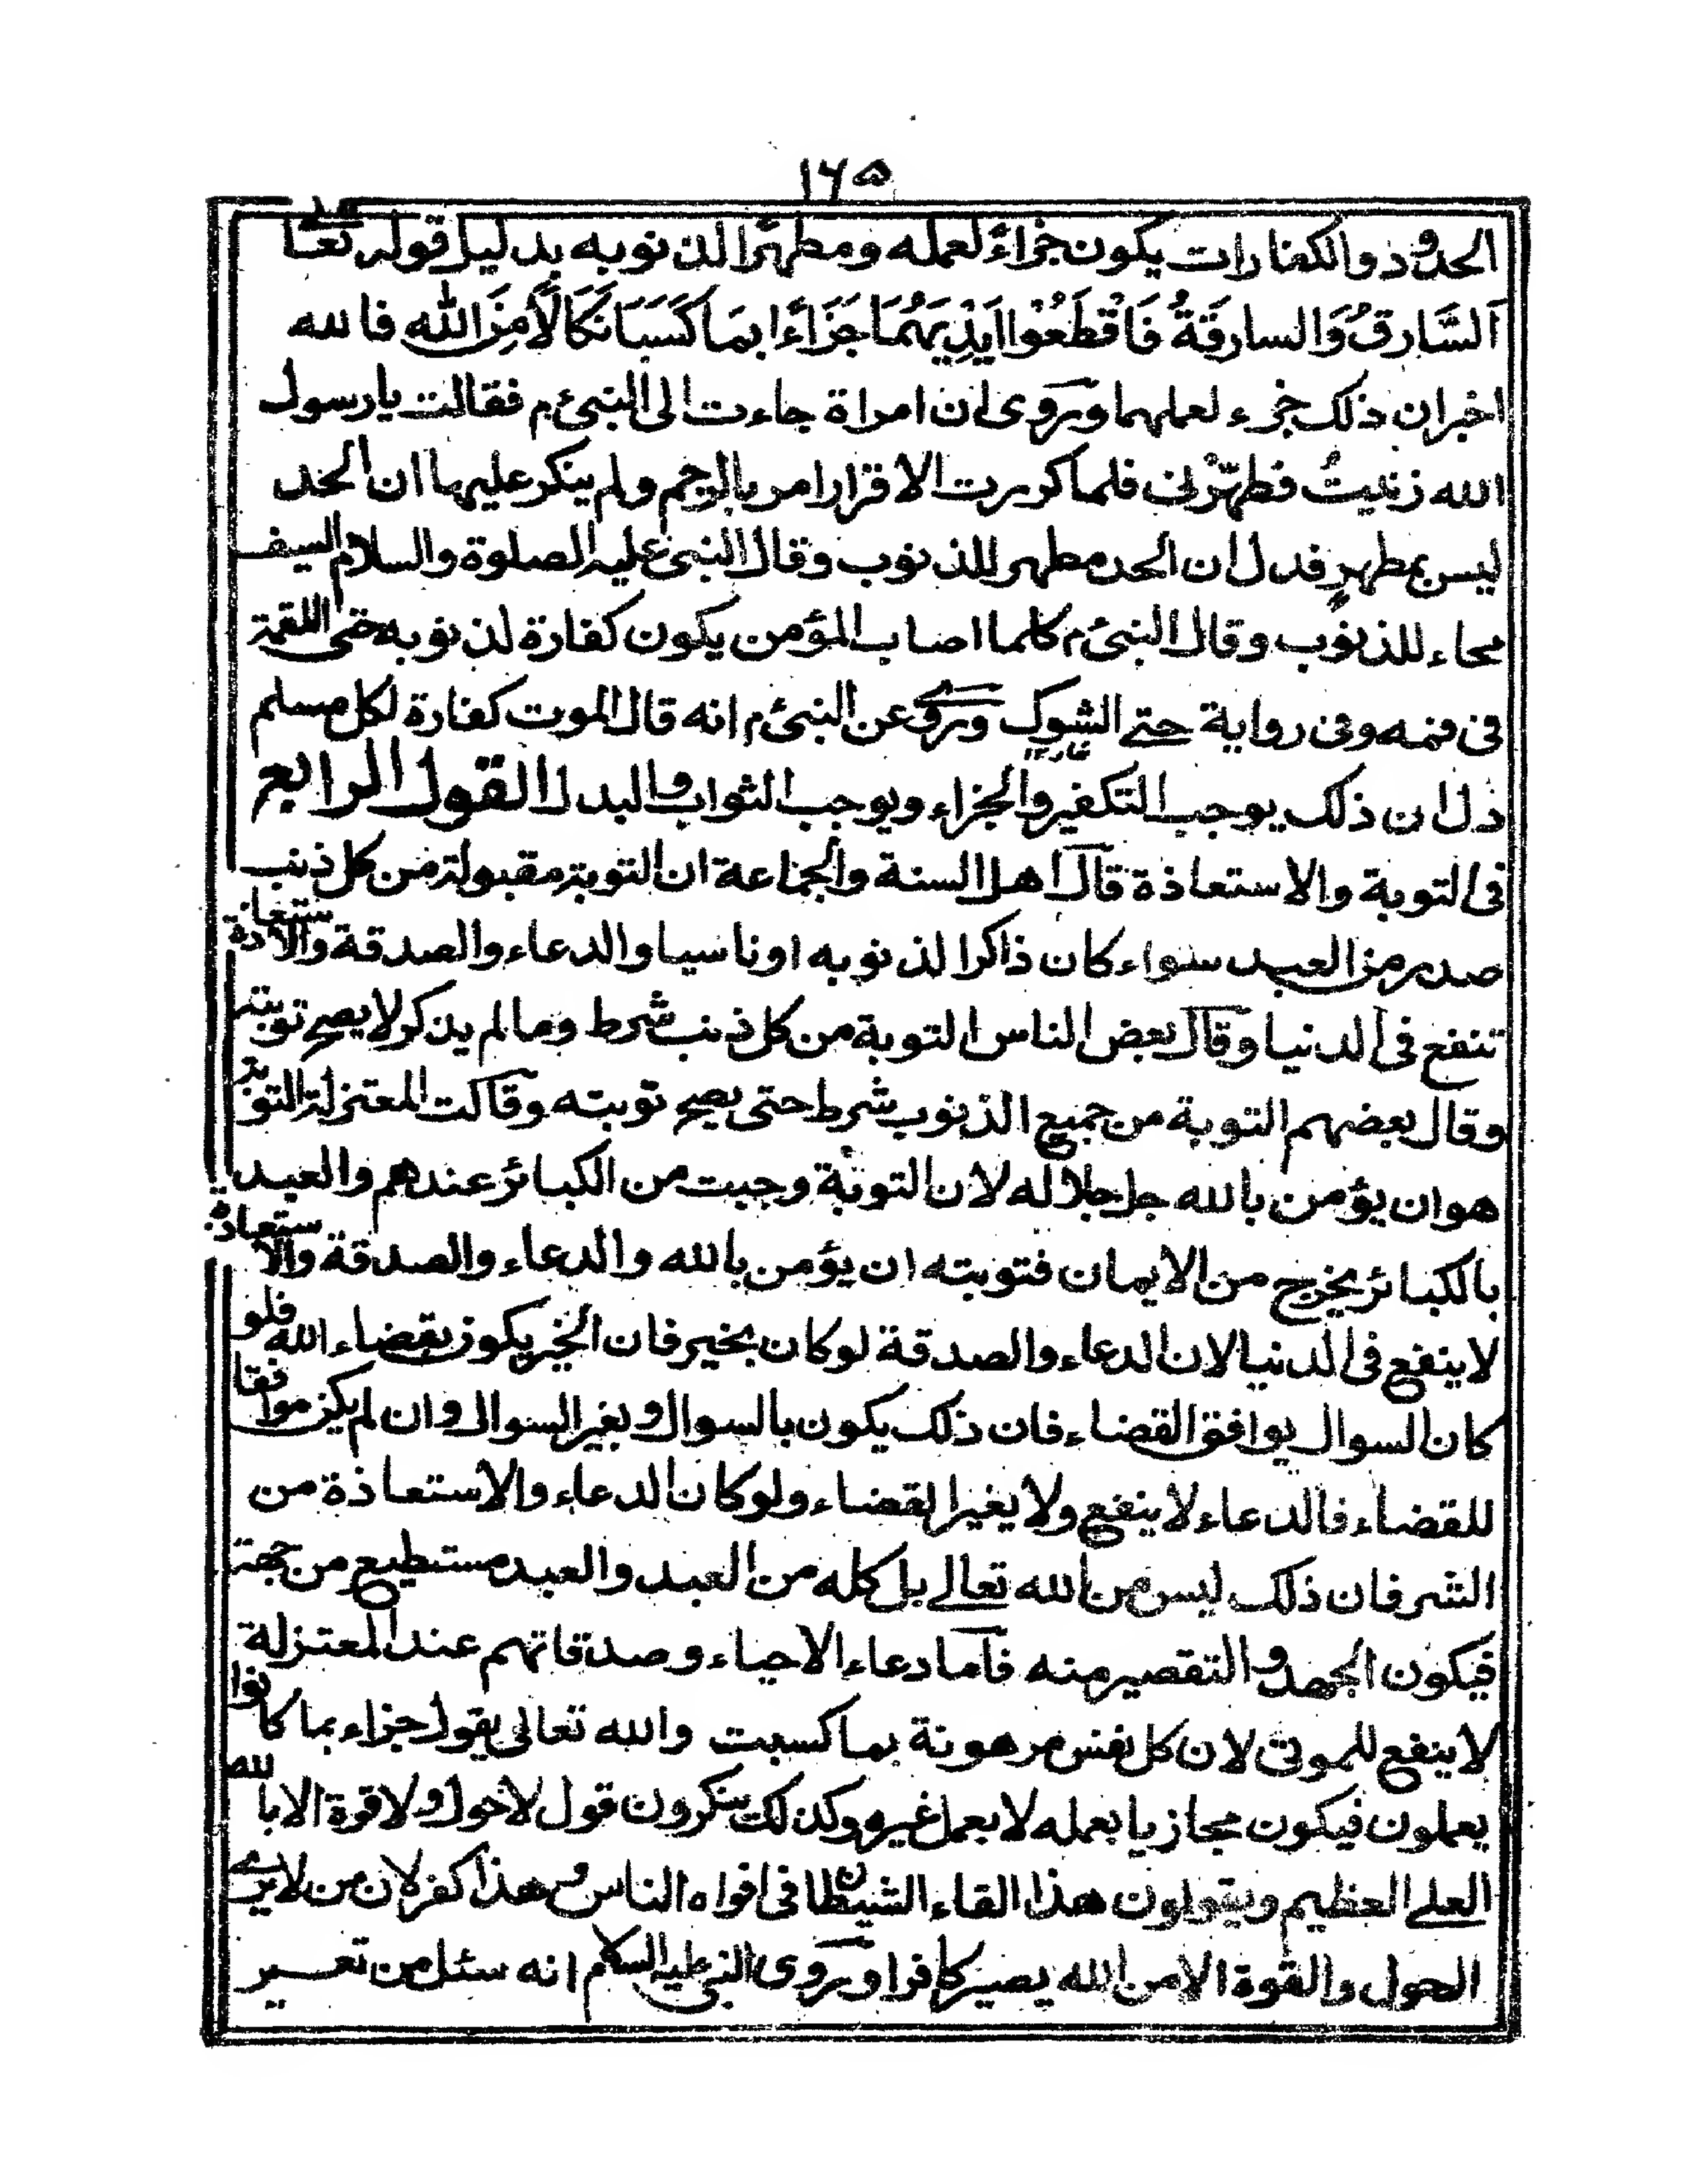 ١٦٥
الحدود والكفارات يكون جزاءً لعمله ومطهّرا لذنوبه بدليل قوله تعالى
اَلسَّارِقُ وَالسارِقَةُ فَاقْطَعُوْا اَيْدِيَهُمَا جَزَاءً بِمَا كَسَبَا نَكَالًا مِنَ الله فالله
اخبران ذلك جزء لعملهما ويروى ان امراة جاءت الى النبىء م فقالت يا رسول
الله زنيتُ فطهّرْنى فلما كررت الاقرار امر بالرجم ولم ينكر عليها ان الحد
ليس بمطهرٍ فدل ان الحد مطهر للذنوب وقال النبى عليه الصلوة والسلام السيف
محاء للذنوب وقال النبىء م كلما اصاب المؤمن يكون كفارة لذنوبه حتى اللقمة
فى فمه وفى رواية حتى الشوك ويروى عن النبىء م انه قال الموت كفارة لكل مسلم
دل ان ذلك يوجب التكفير والجزاء ويوجب الثواب والبدل القول الرابع
فى التوبة والاستعاذة قال اهل السنة والجماعة ان التوبة مقبولة من كل ذنب
صدر من العبد سواء كان ذاكرا لذنوبه او ناسيا والدعاء والصدقة والاستعاذة
تنفع فى الدنيا وقال بعض الناس التوبة من كل ذنب شرط وما لم يذكر لا يصح توبته
وقال بعضهم التوبة من جميع الذنوب شرط حتى يصح توبته وقالت المعتزلة التوبة
هو ان يؤمن بالله جل جلاله لان التوبة وجبت من الكبائر عندهم والعبد
بالكبائر يخرج من الايمان فتوبته ان يؤمن بالله والدعاء والصدقة والاستعاذة
لا ينفع فى الدنيا لان الدعاء والصدقة لو كان بخير فان الخير يكون بقضاء الله فلو
كان السوال يوافق القضاء فان ذلك يكون بالسوال وبغير السوال وان لم يكن موافقا
للقضاء فالدعاء لا ينفع ولا يغير القضاء ولو كان الدعاء والاستعاذة من
الشر فان ذلك ليس من الله تعالى بل كله من العبد والعبد مستطيع من جهة
فيكون الجهد والتقصير منه فاما دعاء الاحياء وصدقاتهم عند المعتزلة
لا ينفع للموتى لان كل نفس مرهونة بما كسبت والله تعالى يقول جزاء بما كانوا
يعملون فيكون مجازيا بعمله لا بعمل غيره وكذلك ينكرون قول لا حول ولا قوة الا بالله
العلى العظيم ويقولون هذا القاء الشيطان فى افواه الناس وهذا كفر لان من لا يرى
الحول والقوة الا من الله يصير كافرا ويروى النبى عليه السلام انه سئل من تفسير